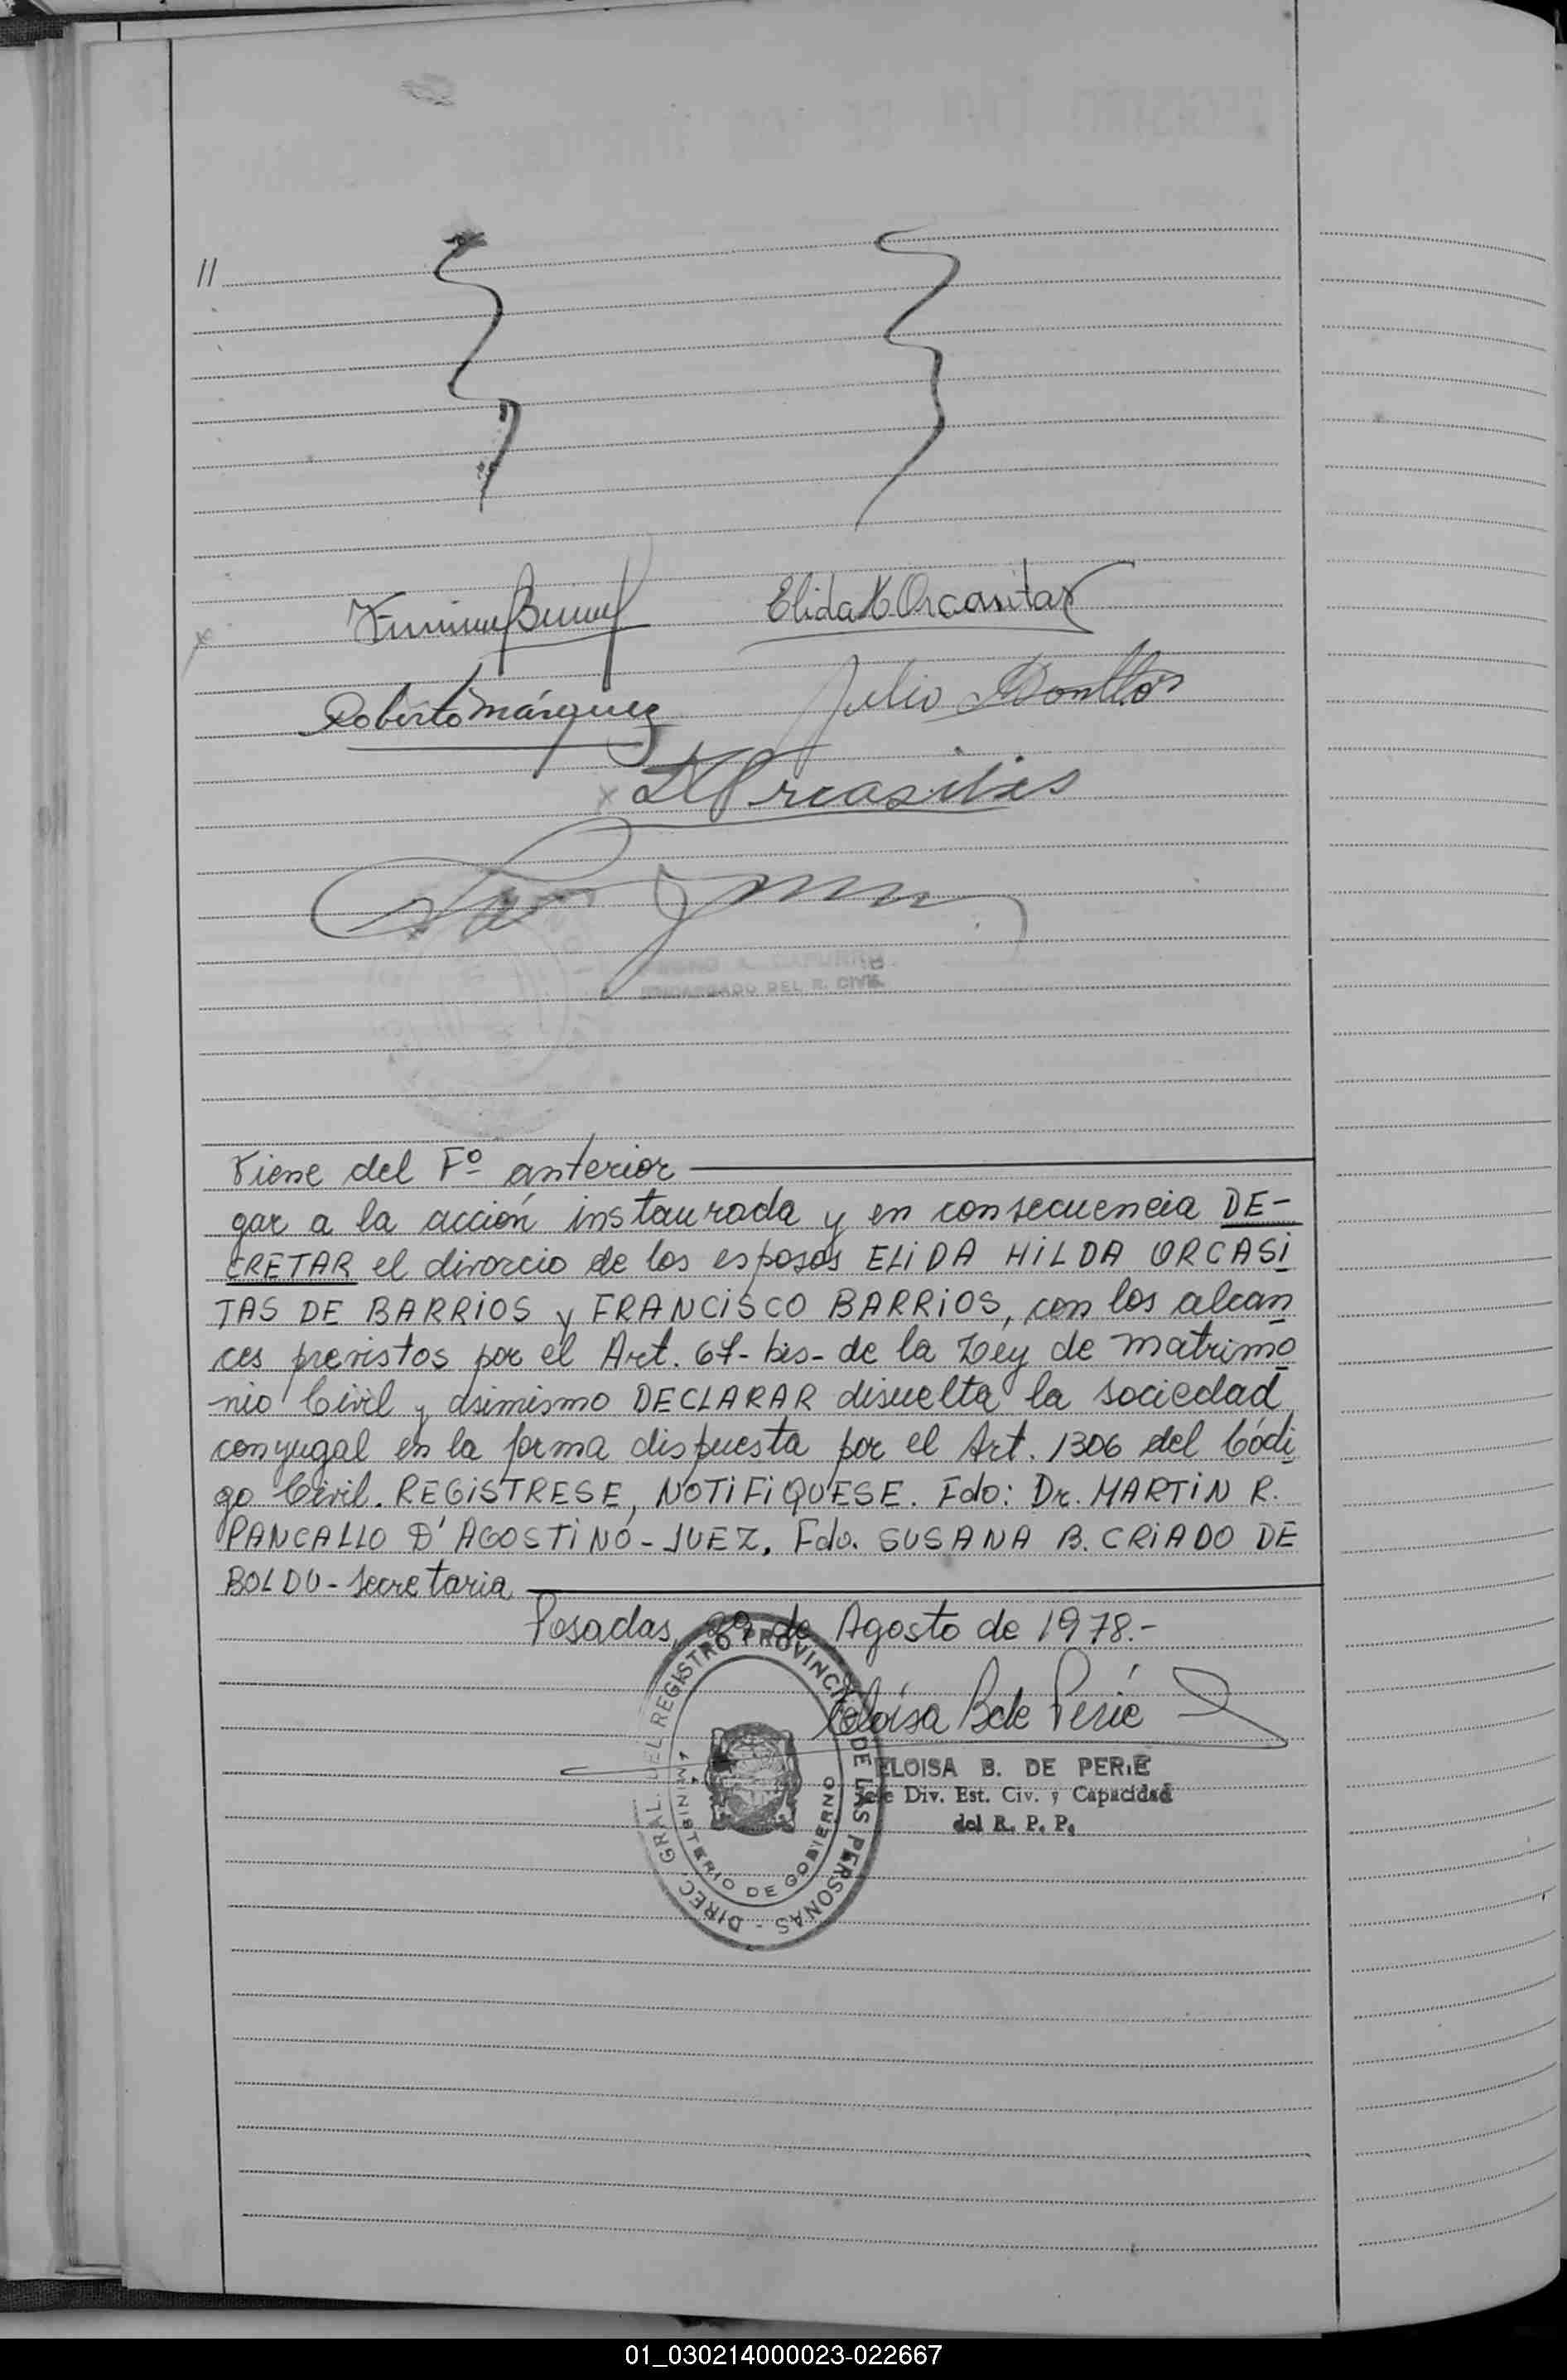 11
Elida H Orcasitas
Roberto Márquez
Julio
Orcasitas
ENCARGADO DEL R. CIVIL
Viene del Fº anterior
gar a la acción instaurada y en consecuencia DE-
CRETAR el divorcio de los esposos ELIDA HILDA ORCASI
TAS DE BARRIOS y FRANCISCO BARRIOS, con los alcan
ces previstos por el Art. 67-bis- de la Ley de matrimo
nio Civil y asimismo DECLARAR disuelta la sociedad
conyugal en la forma dispuesta por el Art. 1306 del Códi
go Civil. REGISTRESE, NOTIFIQUESE. Fdo: Dr. MARTIN R.
PANCALLO D'AGOSTINO-JUEZ. Fdo. SUSANA B. CRIADO DE
BOLDU-Secretaria
Posadas, 29 de Agosto de 1978.-
Eloísa B de Perié
ELOISA B. DE PERIE
Jefe Div. Est. Civ. y Capacidad
del R. P. P.
DIREC. GRAL. DEL REGISTRO PROVINCIAL DE LAS PERSONAS -
MINISTERIO DE GOBIERNO
01_030214000023-022667